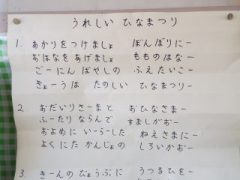 うれしい ひなまつり
1. あかりをつけましょ ぼんぼりにー
おはなをあげましょ もものはなー
ごーにんばやしの ふえたいこー
きょーうは たのしい ひなまつりー
2 おだいりさーまと おひなさまー
ふーたりならんで すましがおー
およめにいーらした ねえさまにー
よくにたかんじょの しろいかおー
3 きーんのびょうぶに うつるひをー